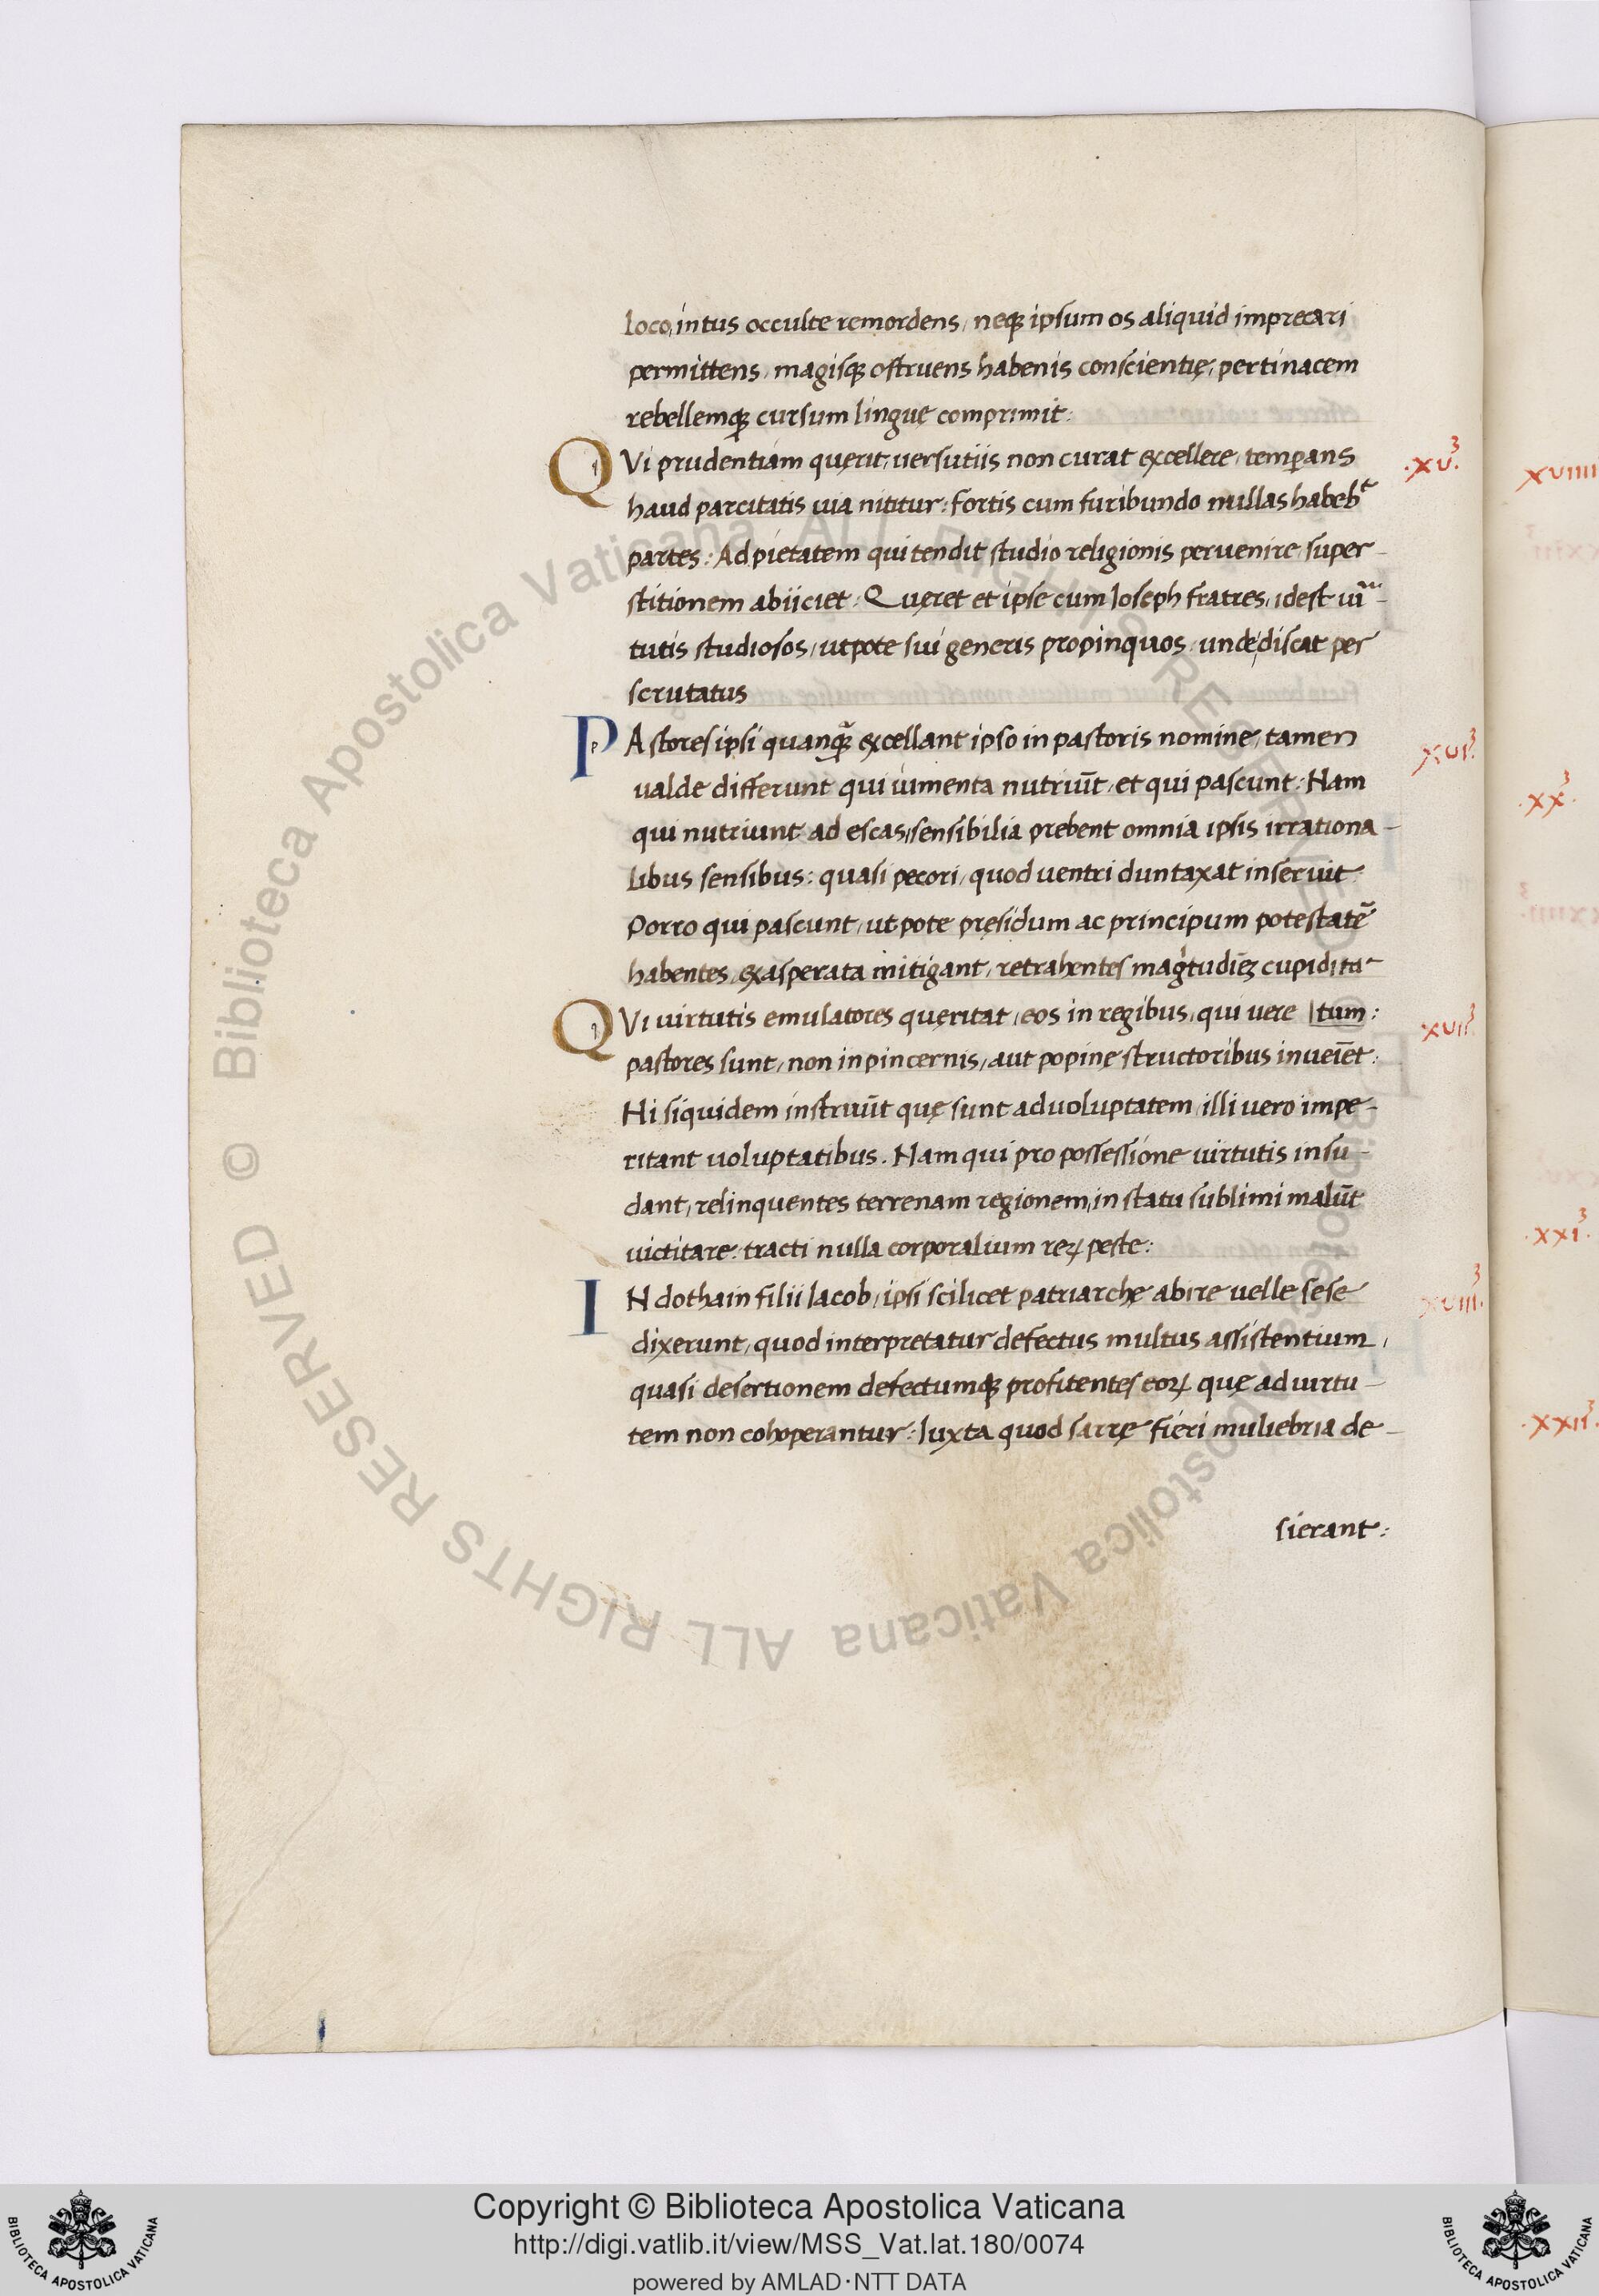 loco, intus occulte remordens, neqꝫ ipsum os aliquid imprecari
permittens, magisqꝫ ostruens habenis conscientię, pertinacem
rebellemqꝫ cursum linguę comprimit:
QVi prudentiam quęrit, uersutiis non curat excellere, temꝑans
haud parcitatis uia nititur: fortis cum furibundo nullas habebᵗ
partes: Ad pietatem qui tendit studio religionis peruenire, super-
stitionem abiiciet: Quęret et ipse cum Ioseph fratres, idest uir-
tutis studiosos, utpote sui generis propinquos, unde discat per
scrutatus
PAstores ipsi quanqꝫ̃ excellant ipso in pastoris nomine, tamen
ualde differunt qui iumenta nutriūt, et qui pascunt: Nam
qui nutriunt ad escas, sensibilia prebent omnia ipsis irrationa-
libus sensibus: quasi pecori, quod uentri duntaxat inseruit:
Porro qui pascunt, utpote pręsidum ac principum potestatē
habentes, exasperata mitigant, retrahentes magⁱtudinēꝫ cupidita-
QVi uirtutis emulatores quęritat, eos in regibus, qui uere |tum:
pastores sunt, non in pincernis, aut popinę structoribus inueīet:
Hi siquidem instruūt quę sunt ad uoluptatem, illi uero impe-
ritant uoluptatibus. Nam qui pro possessione uirtutis insu-
dant, relinquentes terrenam regionem, in statu sublimi malūt
uictitare: tracti nulla corporalium reꝝ peste:
IN dothain filii Iacob, ipsi scilicet patriarchę abire uelle sese
dixerunt, quod interpretatur defectus multus assistentium,
quasi desertionem defectumqꝫ profitentes eoꝝ quę ad uirtu-
tem non cohoperantur: Iuxta quod sarrę fieri muliebria de-
sierant:
.xv³.
.xvi³.
xvii³.
xviii³.
xviiii
.xx³.
.xxi³.
.xxii³.
© Biblioteca Apostolica Vaticana ALL RIGHTS RESERVED © Biblioteca Apostolica Vaticana ALL RIGHTS RESERVED
Copyright © Biblioteca Apostolica Vaticana
http://digi.vatlib.it/view/MSS_Vat.lat.180/0074
powered by AMLAD·NTT DATA
BIBLIOTECA APOSTOLICA VATICANA
BIBLIOTECA APOSTOLICA VATICANA